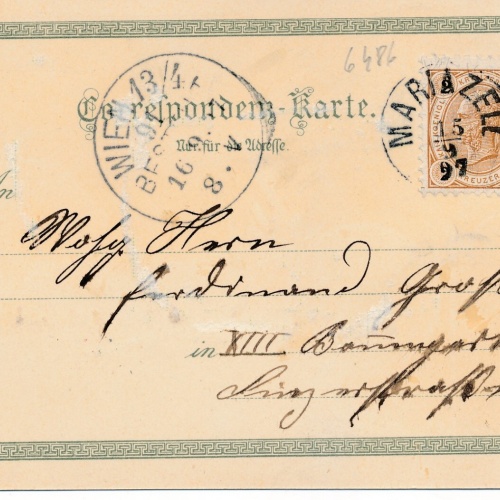 6486
Correspondenz-Karte.
Nur für die Adresse.
WIEN 13/4
BEST
16.9.
8.
MARIAZELL
97
KREUZER
An
Wohlg Herrn
Ferdinand Groß
in XIII Baumgart
Linzerstraße